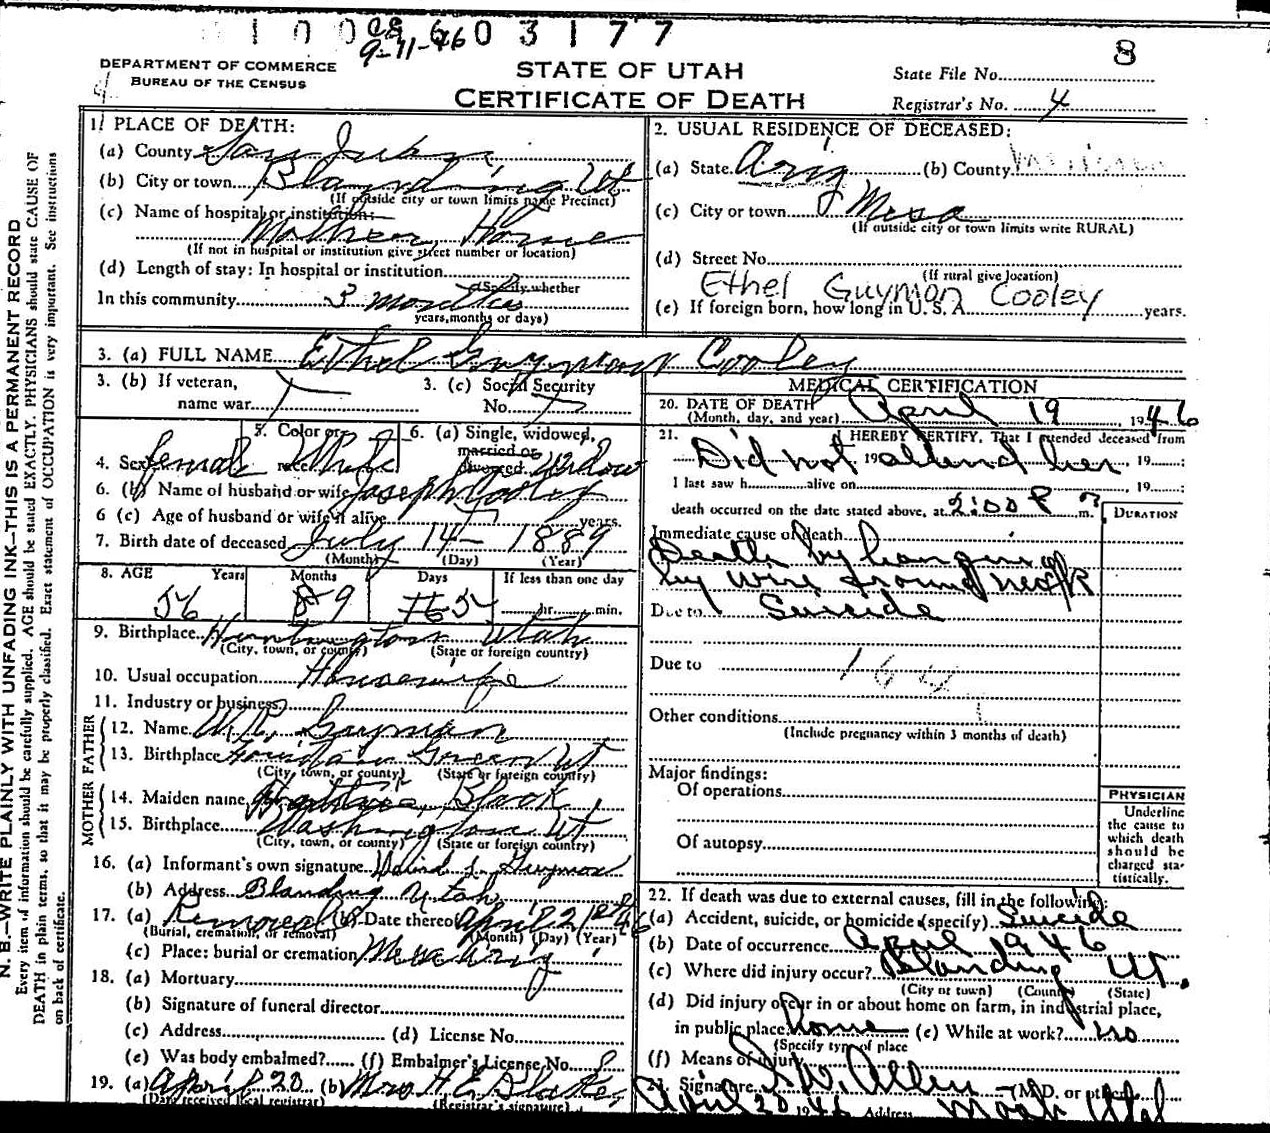 1 0 0 6 0 3 1 7 7
9-11-46
8
DEPARTMENT OF COMMERCE
BUREAU OF THE CENSUS
STATE OF UTAH
CERTIFICATE OF DEATH
State File No.
Registrar's No. 4
N. B.—WRITE PLAINLY WITH UNFADING INK—THIS IS A PERMANENT RECORD
Every item of information should be carefully supplied. AGE should be stated EXACTLY. PHYSICIANS should state CAUSE OF
DEATH in plain terms, so that it may be properly classified. Exact statement of OCCUPATION is very important. See instructions
on back of certificate.
1. PLACE OF DEATH:
(a) County San Juan
(b) City or town Blanding Ut
(If outside city or town limits name Precinct)
(c) Name of hospital or institution:
Mothers Home
(If not in hospital or institution give street number or location)
(d) Length of stay: In hospital or institution
(Specify whether
In this community 3 months
years, months or days)
2. USUAL RESIDENCE OF DECEASED:
(a) State Ariz (b) County
(c) City or town Mesa
(If outside city or town limits write RURAL)
(d) Street No.
(If rural give location)
Ethel Guymon Cooley
(e) If foreign born, how long in U. S. A. years.
3. (a) FULL NAME Ethel Guymon Cooley
3. (b) If veteran,
name war
3. (c) Social Security
No.
4. Sex female
5. Color or
race White
6. (a) Single, widowed,
married or
divorced Widow
6. (b) Name of husband or wife Joseph Cooley
6 (c) Age of husband or wife if alive years.
7. Birth date of deceased July 14 - 1889
(Month) (Day) (Year)
8. AGE Years Months Days If less than one day
56 9 5 hr. min.
9. Birthplace Huntington Utah
(City, town, or county) (State or foreign country)
10. Usual occupation Housewife
11. Industry or business
FATHER
12. Name W.R. Guymon
13. Birthplace Fountain Green Ut
(City, town, or county) (State or foreign country)
MOTHER
14. Maiden name Black
15. Birthplace Washington Ut
(City, town, or county) (State or foreign country)
16. (a) Informant's own signature David S. Guymon
(b) Address Blanding Utah
17. (a) Removal (b) Date thereof April 21 1946
(Burial, cremation, or removal) (Month) (Day) (Year)
(c) Place: burial or cremation Mesa Ariz
18. (a) Mortuary
(b) Signature of funeral director
(c) Address (d) License No.
(e) Was body embalmed? (f) Embalmer's License No.
19. (a) April 20 (b) Mrs H. E. Blake
(Date received local registrar) (Registrar's signature)
MEDICAL CERTIFICATION
20. DATE OF DEATH April 19 1946
(Month, day, and year)
21. I HEREBY CERTIFY, That I attended deceased from
Did not 19 attend her, 19 :
I last saw h alive on , 19 :
death occurred on the date stated above, at 2:00 P m.
DURATION
Immediate cause of death
Death by hanging
by wire around neck
Due to Suicide
Due to 164
Other conditions
(Include pregnancy within 3 months of death)
Major findings:
Of operations
Of autopsy
PHYSICIAN
Underline
the cause to
which death
should be
charged sta-
tistically.
22. If death was due to external causes, fill in the following:
(a) Accident, suicide, or homicide (specify) Suicide
(b) Date of occurrence April 1946
(c) Where did injury occur? Blanding Ut.
(City or town) (County) (State)
(d) Did injury occur in or about home on farm, in industrial place,
in public place home (e) While at work? no
(Specify type of place
(f) Means of injury
23. Signature I. W. Allen (M.D. or other)
April 20 1946 Address Moab Utah